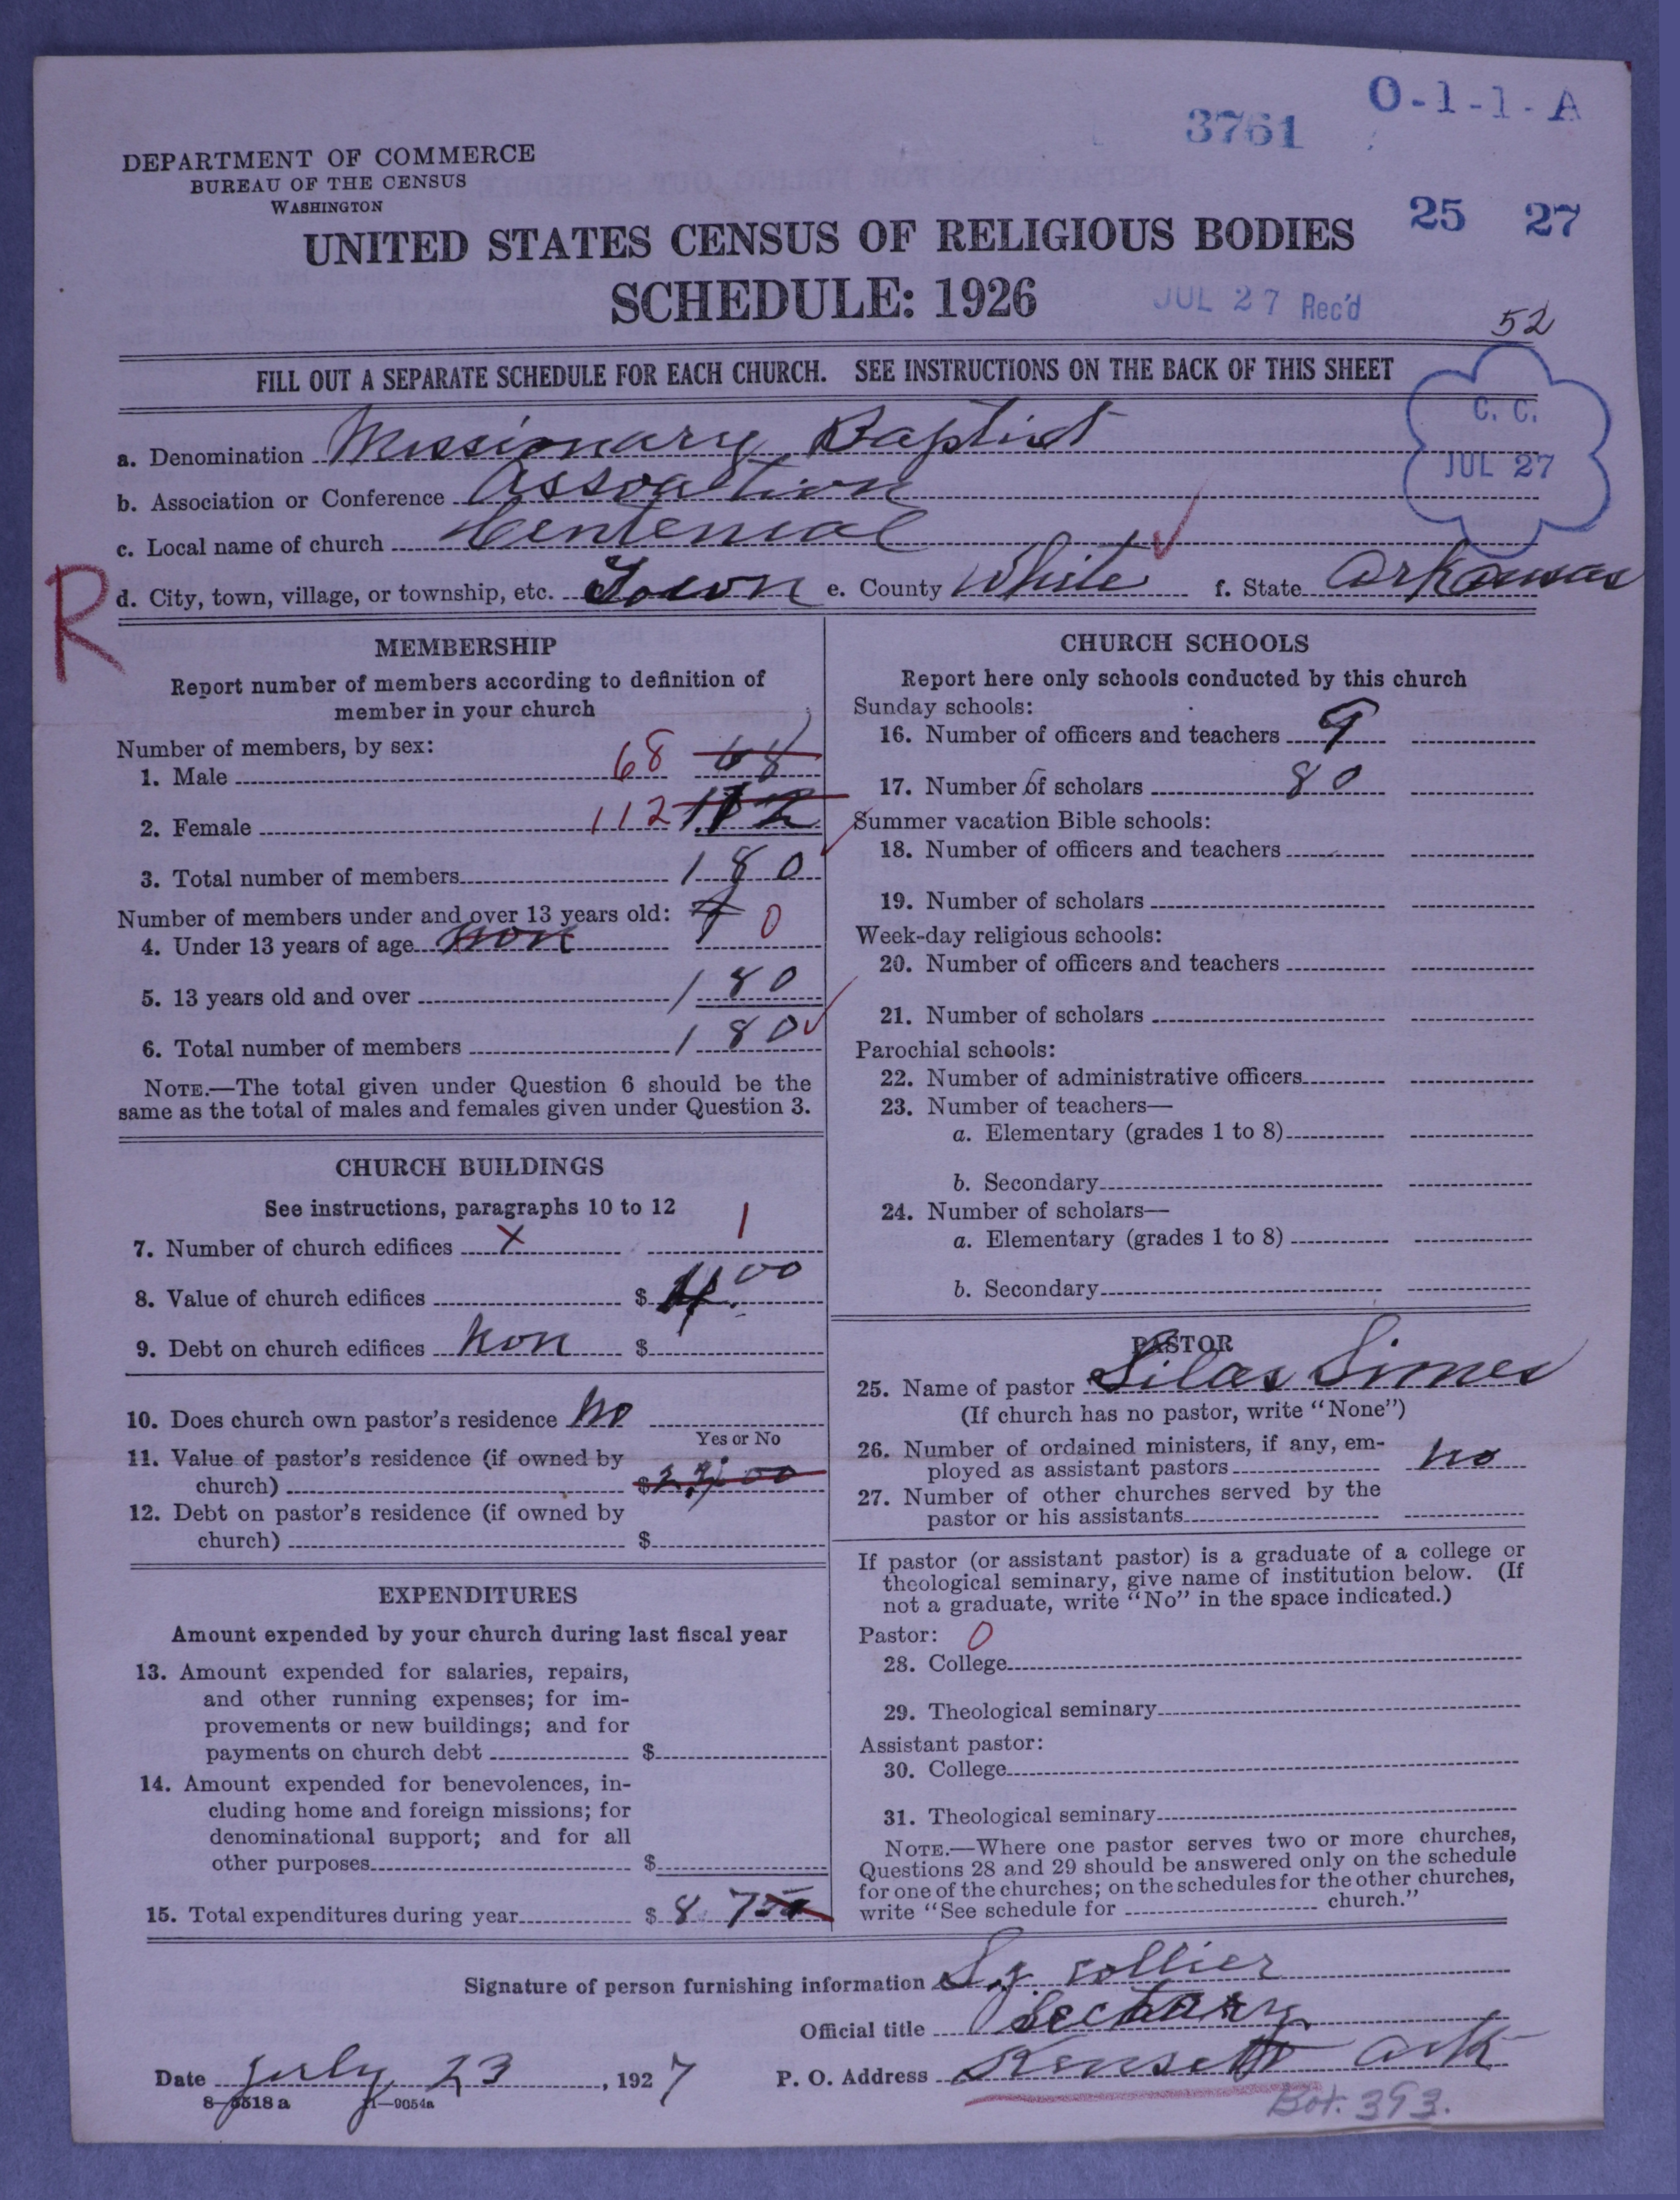 O-1-1-A
3761
DEPARTMENT OF COMMERCE
BUREAU OF THE CENSUS
WASHINGTON
25 27
UNITED STATES CENSUS OF RELIGIOUS BODIES
SCHEDULE: 1926
JUL 27 Rec'd
52
FILL OUT A SEPARATE SCHEDULE FOR EACH CHURCH. SEE INSTRUCTIONS ON THE BACK OF THIS SHEET
C. C.
JUL 27
a. Denomination Missionary Baptist
b. Association or Conference Assoation
c. Local name of church Centenial
R
d. City, town, village, or township, etc. Town e. County White f. State Arkansas
MEMBERSHIP
Report number of members according to definition of
member in your church
Number of members, by sex:
1. Male 68 68
2. Female 112 112
3. Total number of members 180
Number of members under and over 13 years old:
4. Under 13 years of age non 0
5. 13 years old and over 180
6. Total number of members 180
NOTE.—The total given under Question 6 should be the
same as the total of males and females given under Question 3.
CHURCH BUILDINGS
See instructions, paragraphs 10 to 12
7. Number of church edifices X 1
8. Value of church edifices $ 00
9. Debt on church edifices non $
10. Does church own pastor's residence no
Yes or No
11. Value of pastor's residence (if owned by
church) $
12. Debt on pastor's residence (if owned by
church) $
EXPENDITURES
Amount expended by your church during last fiscal year
13. Amount expended for salaries, repairs,
and other running expenses; for im-
provements or new buildings; and for
payments on church debt $
14. Amount expended for benevolences, in-
cluding home and foreign missions; for
denominational support; and for all
other purposes $
15. Total expenditures during year $ 87
CHURCH SCHOOLS
Report here only schools conducted by this church
Sunday schools:
16. Number of officers and teachers 9
17. Number of scholars 80
Summer vacation Bible schools:
18. Number of officers and teachers
19. Number of scholars
Week-day religious schools:
20. Number of officers and teachers
21. Number of scholars
Parochial schools:
22. Number of administrative officers
23. Number of teachers—
a. Elementary (grades 1 to 8)
b. Secondary
24. Number of scholars—
a. Elementary (grades 1 to 8)
b. Secondary
PASTOR
25. Name of pastor Silas Simes
(If church has no pastor, write "None")
26. Number of ordained ministers, if any, em-
ployed as assistant pastors no
27. Number of other churches served by the
pastor or his assistants
If pastor (or assistant pastor) is a graduate of a college or
theological seminary, give name of institution below. (If
not a graduate, write "No" in the space indicated.)
Pastor: 0
28. College
29. Theological seminary
Assistant pastor:
30. College
31. Theological seminary
NOTE.—Where one pastor serves two or more churches,
Questions 28 and 29 should be answered only on the schedule
for one of the churches; on the schedules for the other churches,
write "See schedule for church."
Signature of person furnishing information S.J. Collier
Official title Sectary
Date July 23, 1927 P. O. Address Kensett Ark
8-5518 a 11—9054a
Bot. 393.